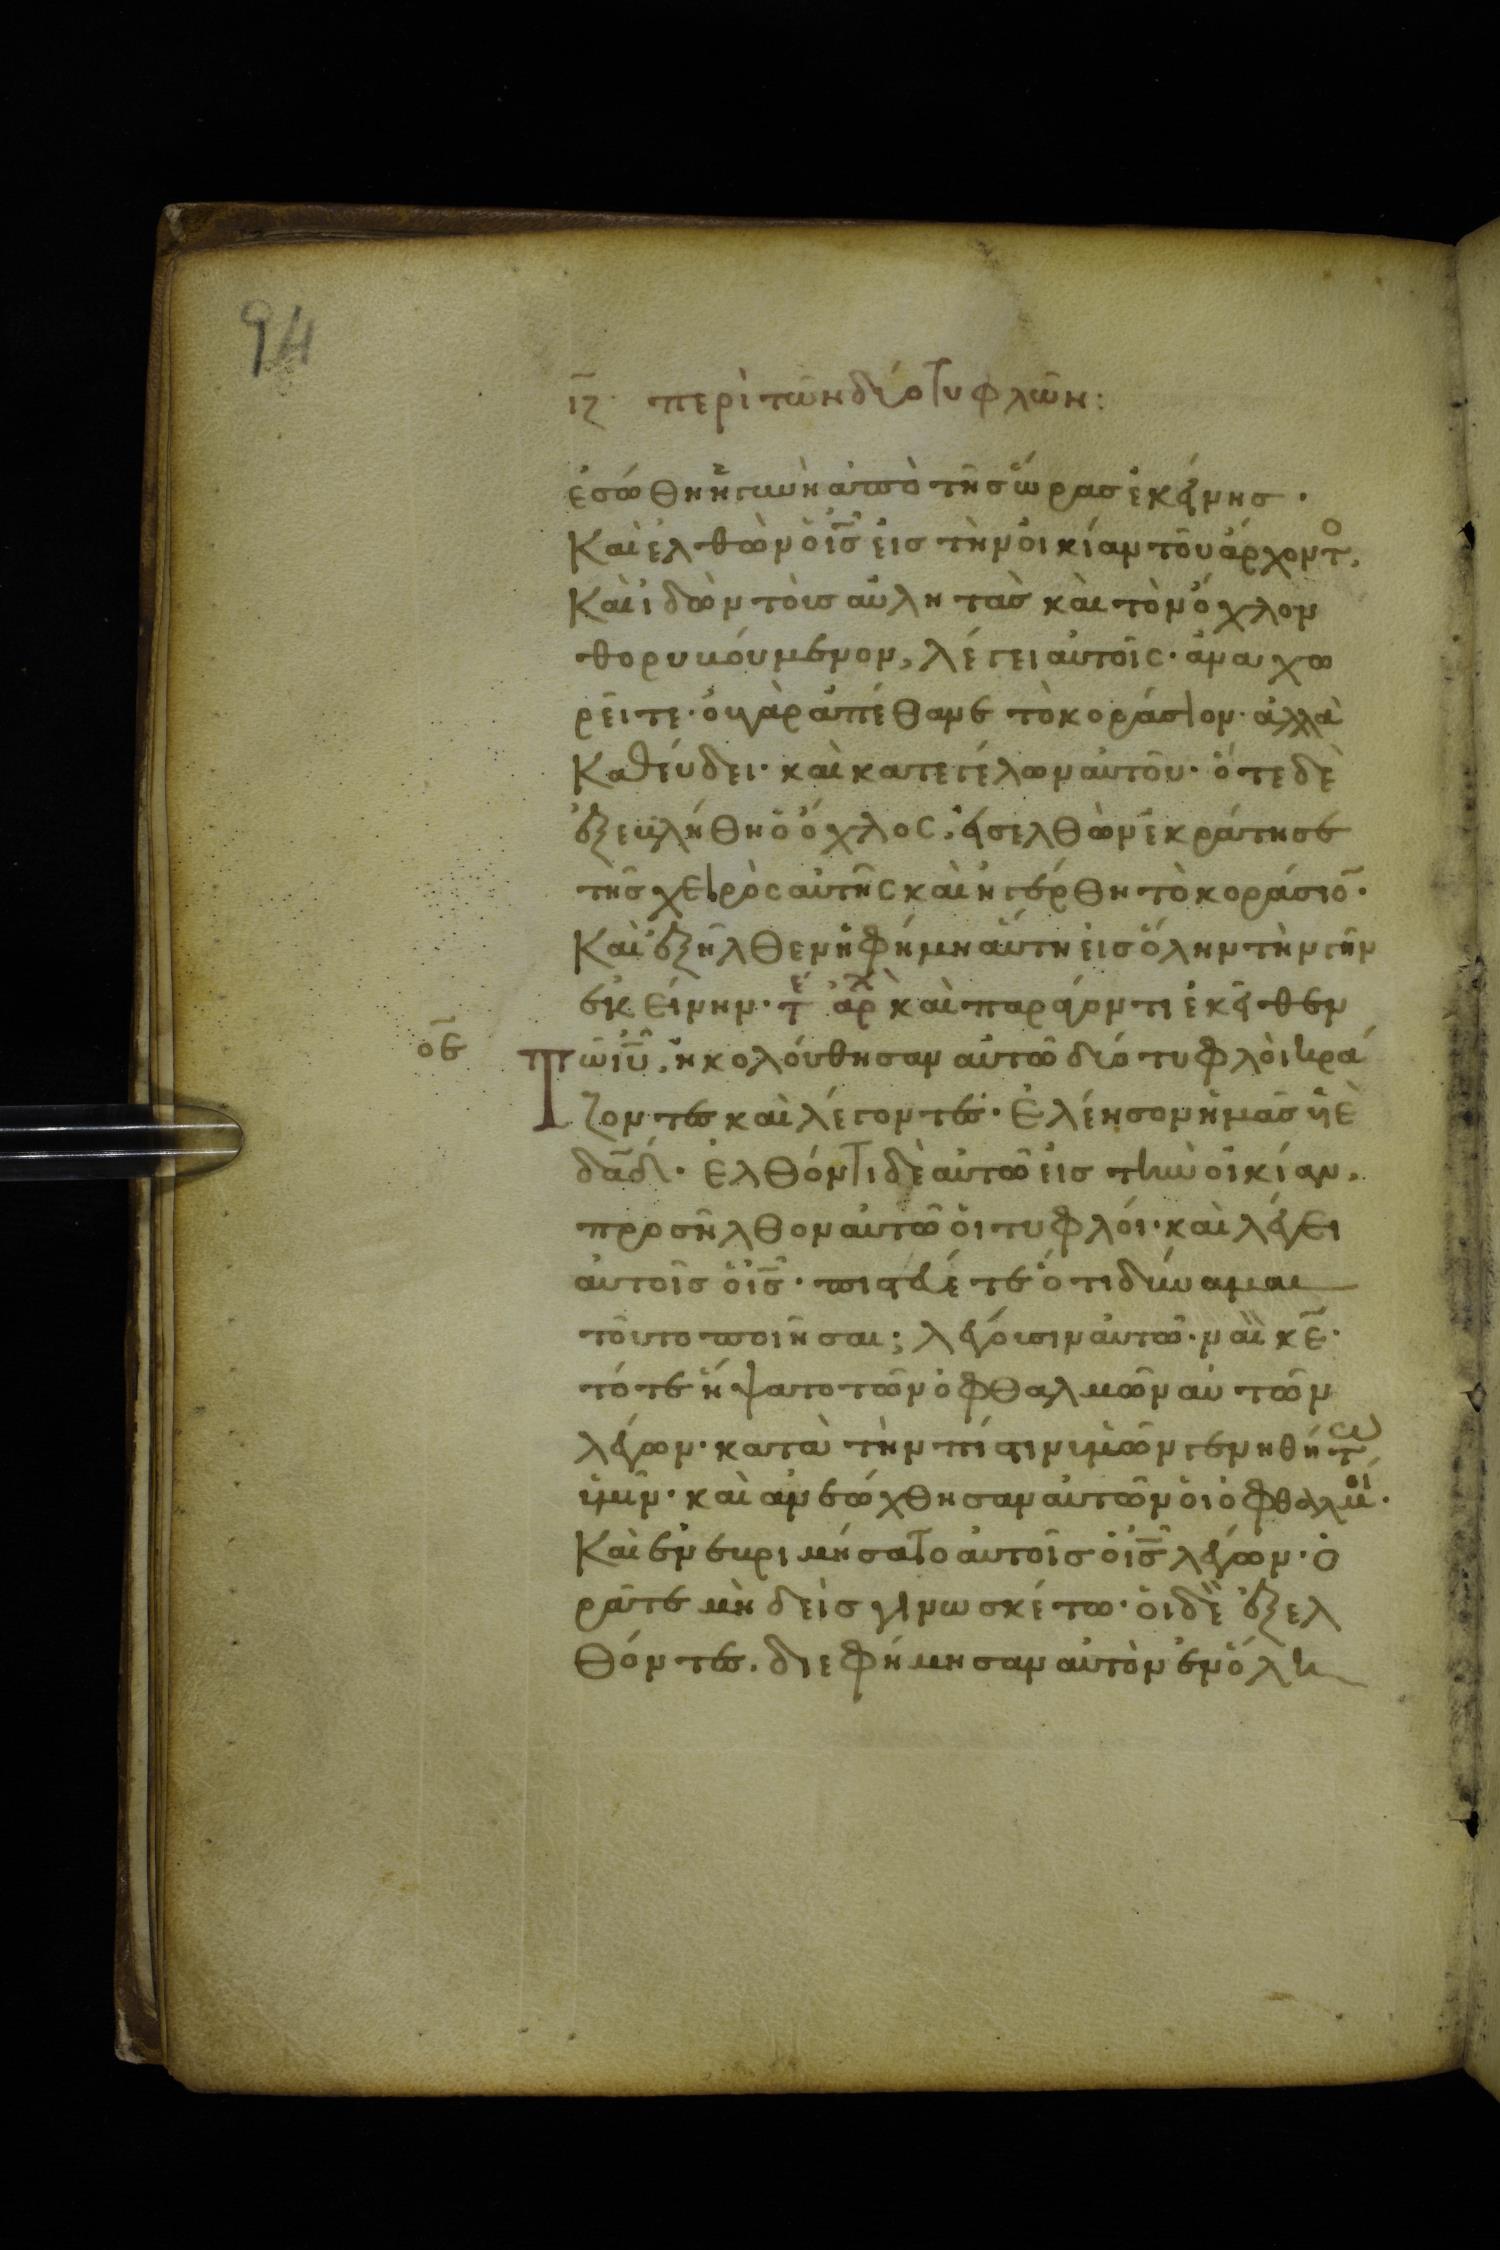 94
ιζ περὶ τῶν δύο τυφλῶν:
ἐσώθη ἡ γυνὴ ἀπὸ τῆς ὥρας ἐκείνης·
Καὶ ἐλθὼν ὁ ις εἰς τὴν οἰκίαν τοῦ ἄρχοντο,
Καὶ ἰδὼν τοὺς αὐλητὰς καὶ τὸν ὄχλον
θορυβούμενον, λέγει αὐτοῖς· ἀναχω
ρεῖτε· οὐ γὰρ ἀπέθανε τὸ κοράσιον· ἀλλὰ
Καθεύδει· καὶ κατεγέλων αὐτοῦ· ὅτε δὲ
ἐξεβλήθη ὁ ὄχλος, εἰσελθὼν ἐκράτησε
τῆς χειρὸς αὐτῆς καὶ ἠγέρθη τὸ κοράσιο̅·
Καὶ ἐξῆλθεν ἡ φήμη αὕτη εἰς ὅλην τὴν γῆν
ἐκείνην· τε αρχ καὶ παράγοντι ἐκεῖθεν
οε Τῶ ιυ, ἠκολούθησαν αὐτῶ δύο τυφλοὶ κρά
ζοντες καὶ λέγοντες· Ἐλέησον ἡμᾶς υἱὲ
δαδ· Ἐλθόντι δὲ αὐτῶ εἰς τὴν οἰκίαν,
προσῆλθον αὐτῶ οἱ τυφλοί· καὶ λέγει
αὐτοῖς ὁ ις· πιστεύετε ὅτι δύναμαι
τοῦτο ποιῆσαι; λέγουσιν αὐτῶ· ναὶ κε·
τότε ἥψατο τῶν ὀφθαλμῶν αὐτῶν
λέγων· κατὰ τὴν πίστιν ὑμῶν γενηθήτω
ὑμῖν· καὶ ἀνεώχθησαν αὐτῶν οἱ ὀφθαλμοί·
Καὶ ἐνεβριμήσατο αὐτοῖς ὁ ις λέγων· ὁ
ρᾶτε μὴ δεὶς γινωσκέτω· οἱ δὲ ἐξελ
θόντες, διεφήμησαν αὐτὸν ἐν ὅλη